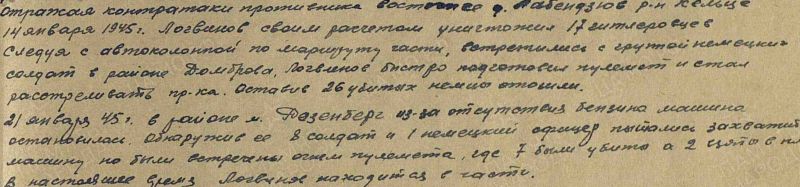 Отражая контратаки противника восточнее д. Лабендзюв р-н Кельце
14 января 1945г. Логвинов своим расчетом уничтожил 17 гитлеровцев
Следуя с автоколонной по маршруту части, встретились с группой немецких
солдат в районе Домброва, Логвинов быстро подготовил пулемет и стал
расстреливать пр-ка. Оставив 26 убитых немцы отошли.
21 января 45г. в районе м. Розенберг из-за отсутствия бензина машина
остановилась. Обнаружив ее 8 солдат и 1 немецкий офицер пытались захватить
машину но были встречены огнем пулемета, где 7 были убиты а 2 взяты в
В настоящее время Логвинов находится в части.